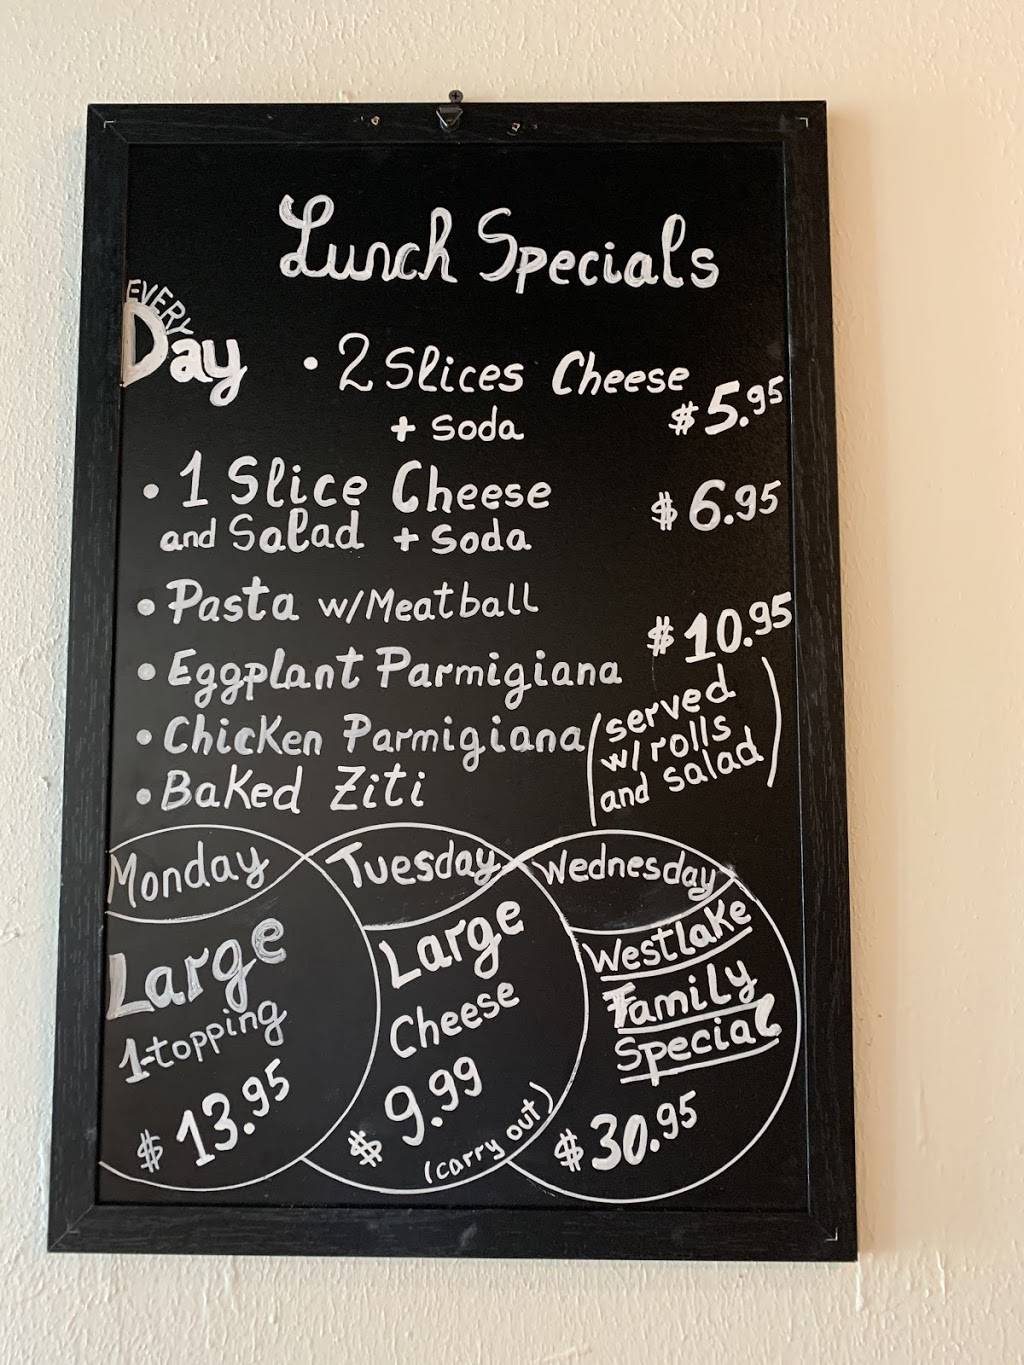 Lunch Specials
EVERY
Day
• 2 Slices Cheese
+ Soda
$5.95
• 1 Slice Cheese
and Salad + Soda
$6.95
• Pasta w/Meatball
• Eggplant Parmigiana
• Chicken Parmigiana
• Baked Ziti
$10.95
(served
w/ rolls
and salad)
Monday
Large
1-topping
$13.95
Tuesday
Large
Cheese
$9.99
(carry out)
Wednesday
Westlake
Family
Special
$30.95